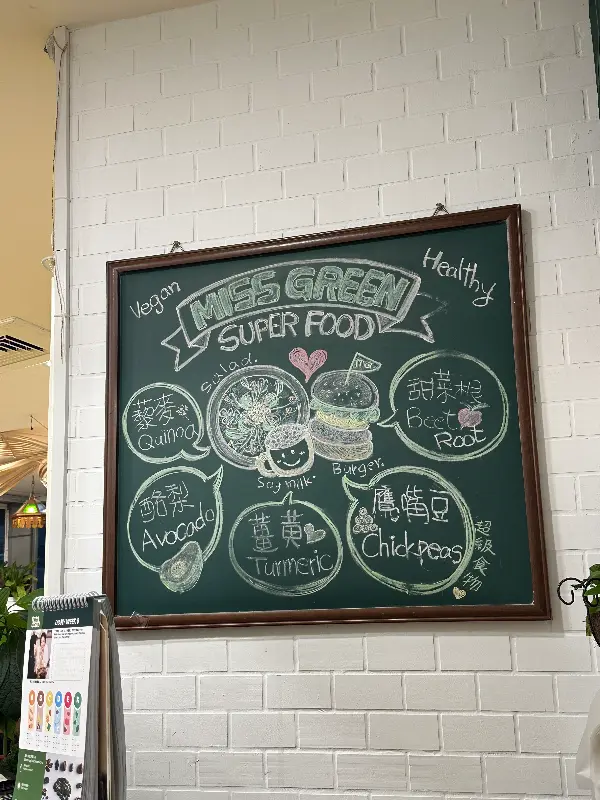 Vegan
Healthy
MISS GREEN
SUPER FOOD
Salad.
藜麥
Quinoa
甜菜根
Beet
Root
Soymilk.
Burger.
酪梨
Avocado
薑黃
Turmeric
鷹嘴豆
Chickpeas
超級食物